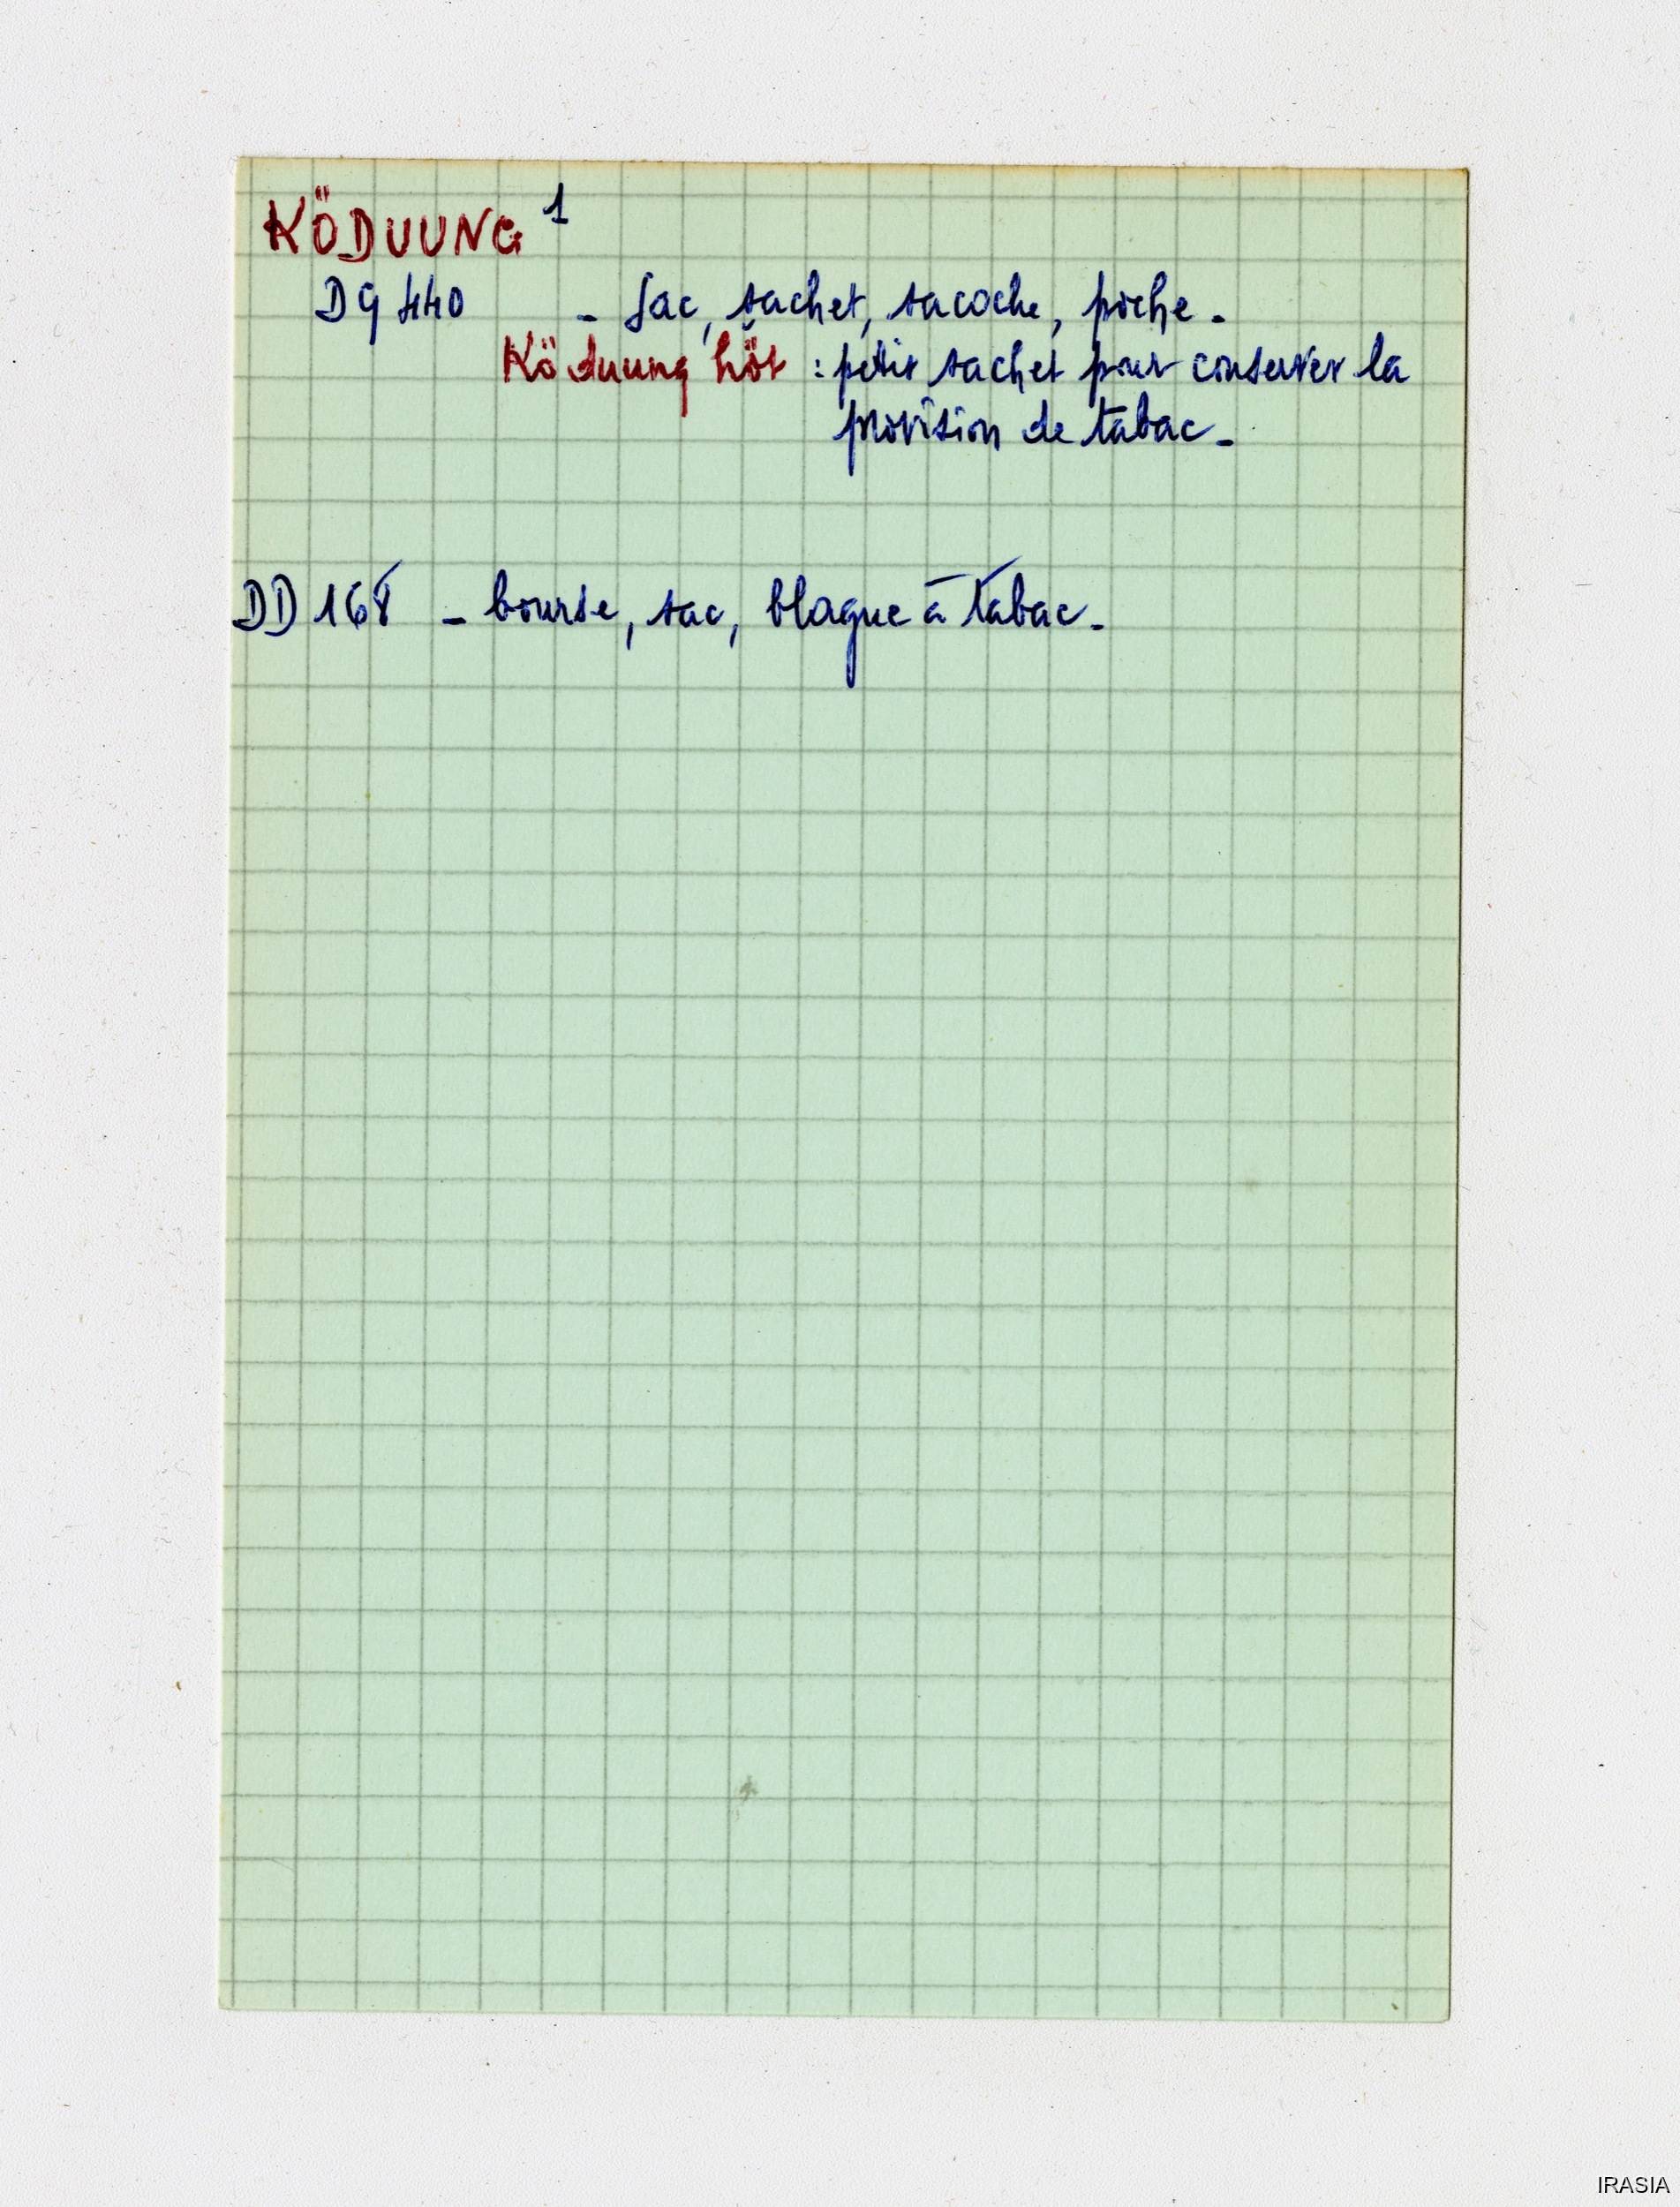 KÖDUUNG 1
DG 440 - Sac, sachet, sacoche, poche.
Köduung hŏt : petit sachet pour conserver la
provision de tabac.
DD 168 - bourse, sac, blague à tabac.
IRASIA